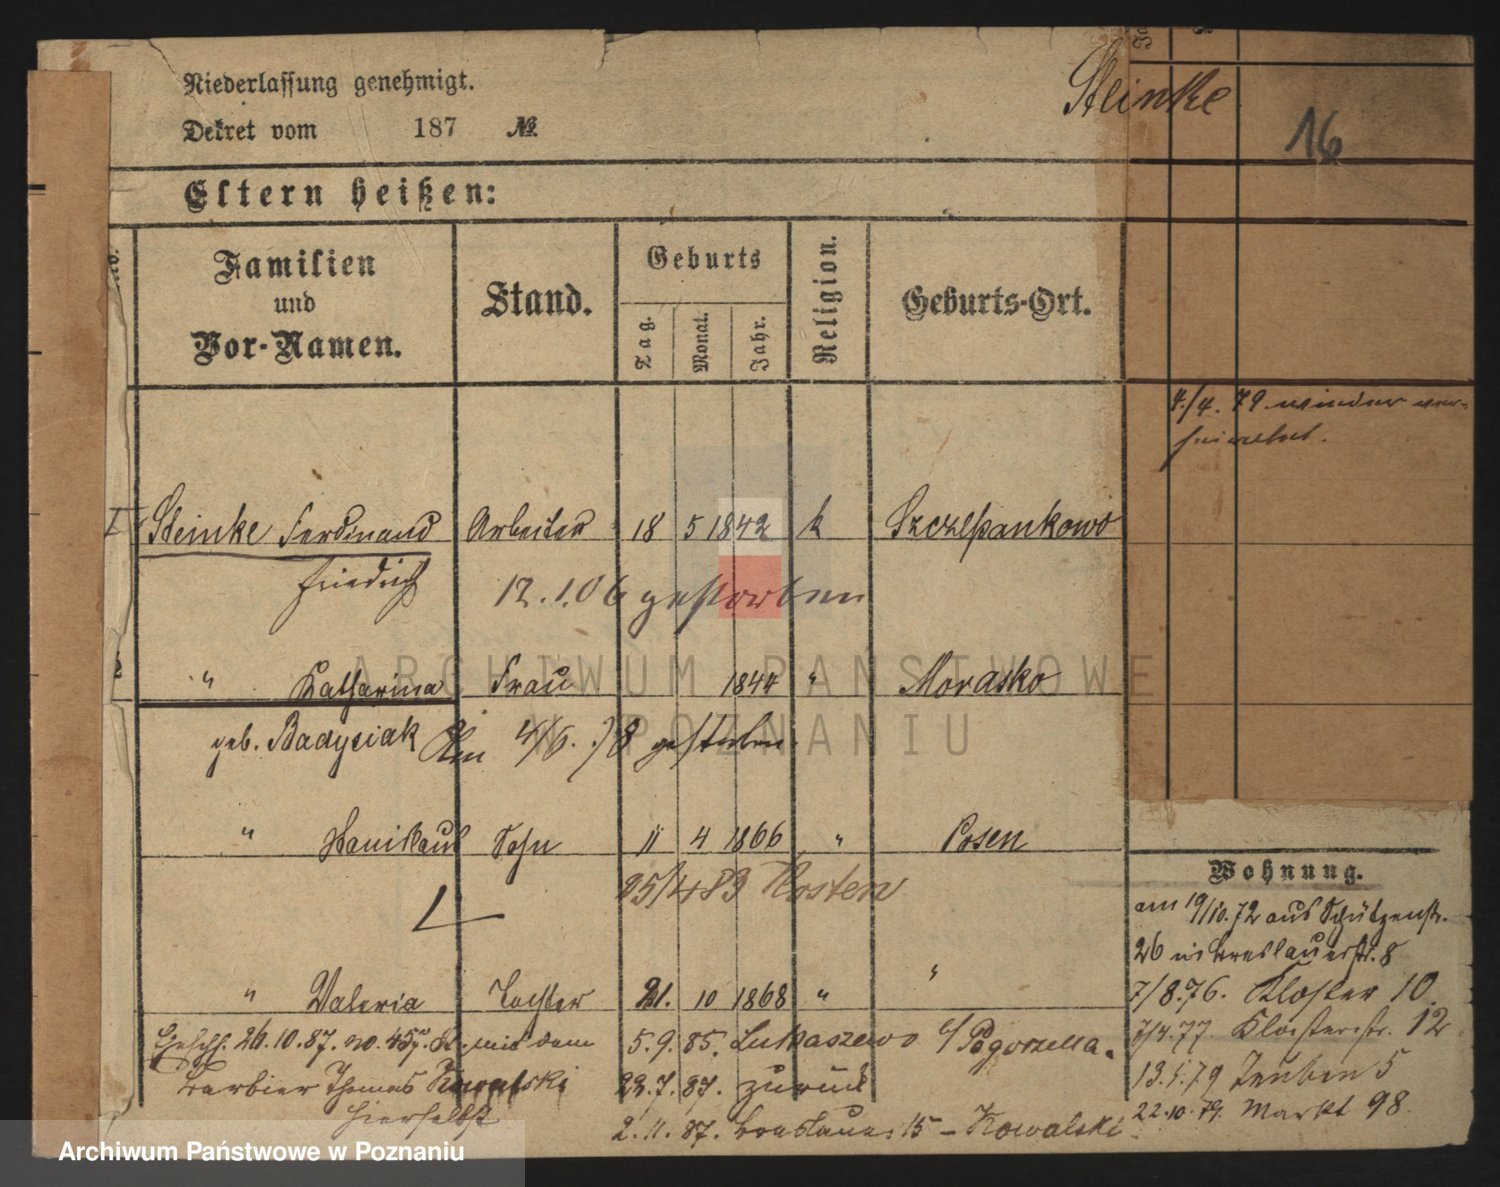 Niederlassung genehmigt.
Steinke
16
Dekret vom 187 №
Eltern heißen:
Familien und Vor-Namen.
Stand.
Geburts
Tag.
Monat.
Jahr.
Religion.
Geburts-Ort.
4./4. 79. wieder ver-
heirathet.
I Steinke Ferdinand Arbeiter 18 5 1842 k Szczepankowo
Friedrich 12.1.06 gestorben
2 " Katharina Frau 1844 " Morasko
geb. Badysiak Am 4/6. 78 gestorben.
" Stanislaus Sohn 11 4 1866 " Posen
25/4 83 Kosten
" Valeria Tochter 21. 10 1868 " "
Gesch. 26.10.87. no. 45 mit dem
Barbier Thomas Kowalski
hierselbst
5.9.85. Lukaszewo Pogorzella.
22.7.87. zurück
2.11.87. Breslauer 15 - Kowalski
Wohnung.
am 19/10.72 aus Schützenstr.
26 in Breslauerstr. 8
7/8.76. Kloster 10.
7/4.77. Klosterstr. 12
13.5.79 Tauben 5
22.10.79. Markt 98.
ARCHIWUM PAŃSTWOWE
W POZNANIU
Archiwum Państwowe w Poznaniu